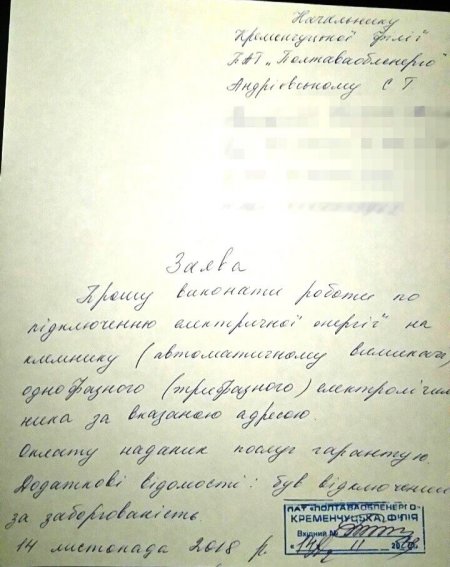 Начальнику
Кременчуцької філії
ПАТ „Полтаваобленерго"
Андрієвському С Г
Заява
Прошу виконати роботи по
підключенню електричної енергії на
клемнику (автоматичному вимикачі)
однофазного (трифазного) електролічиль
ника за вказаною адресою.
Оплату наданих послуг гарантую.
Додаткові відомості: був відключений
за заборгованість.
14 листопада 2018 р
ПАТ «ПОЛТАВАОБЛЕНЕРГО»
КРЕМЕНЧУЦЬКА ФІЛІЯ
Вхідний №
«14» 11 20